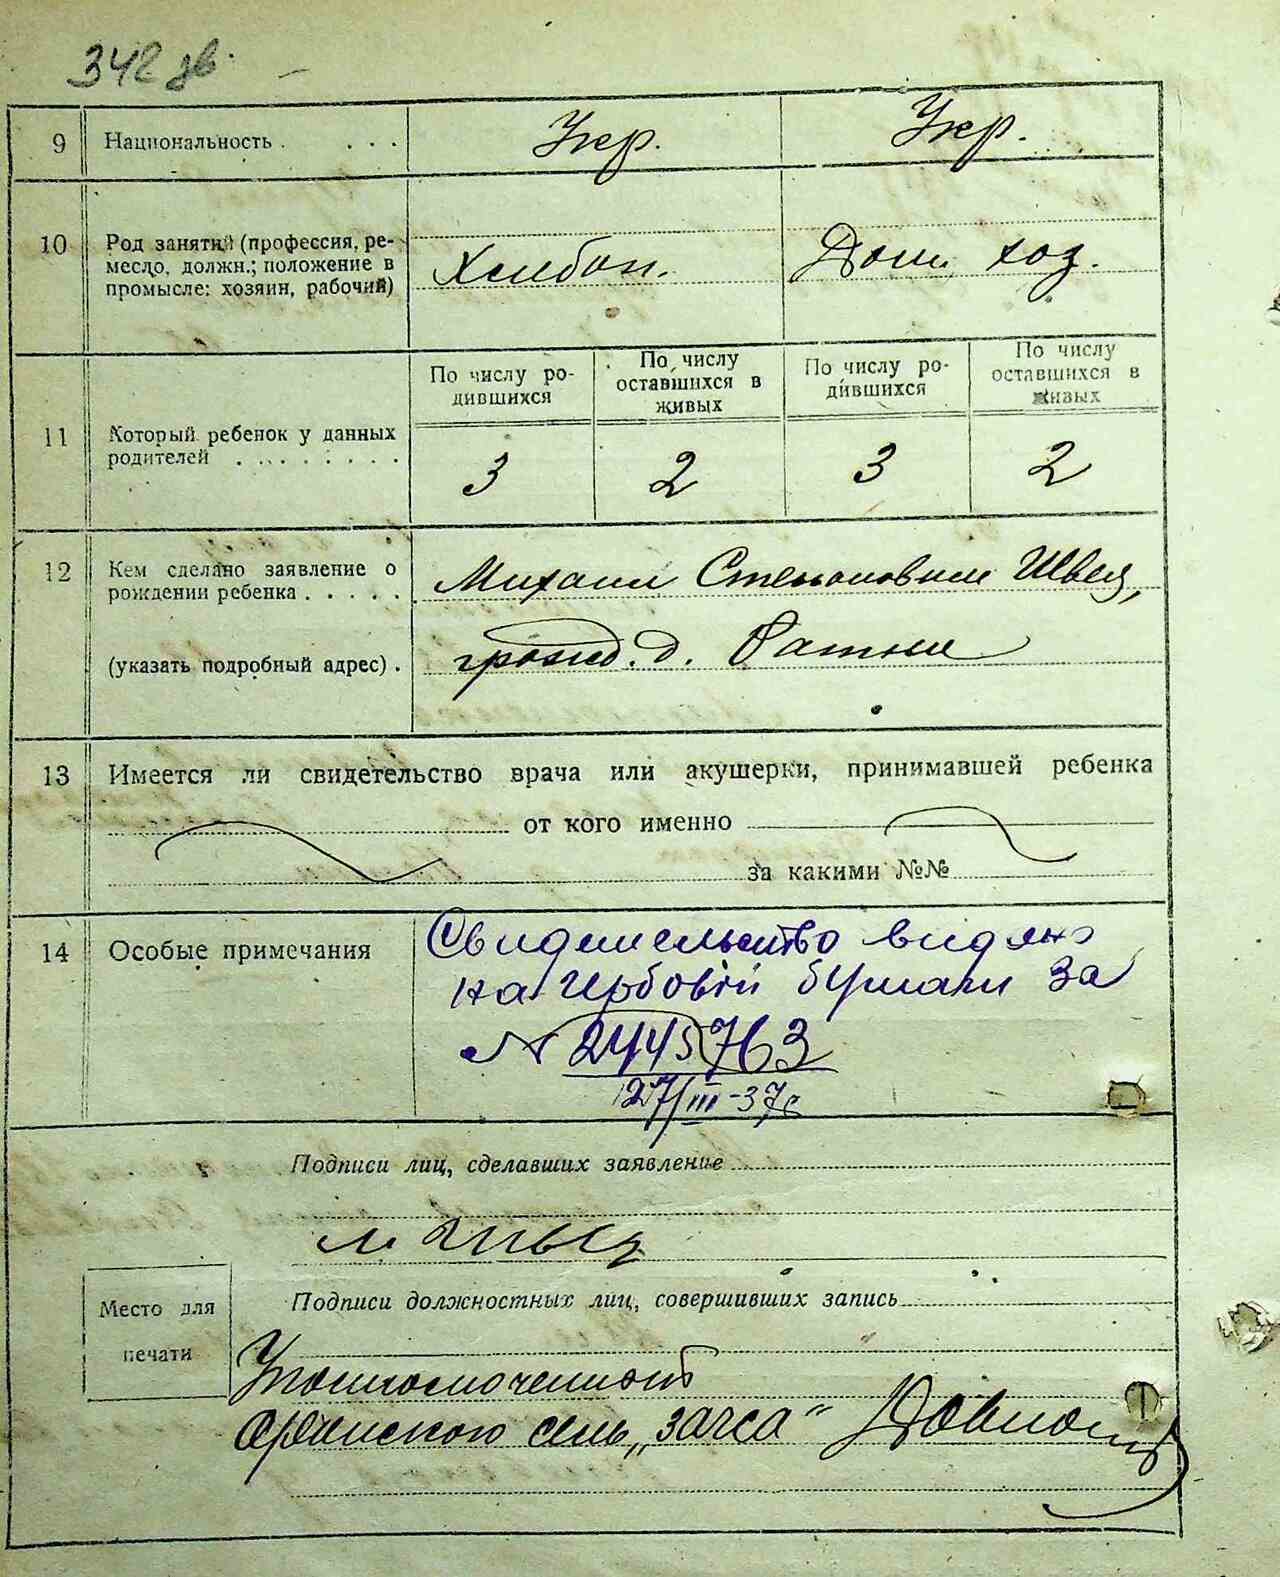 342 зв.
9 Национальность . . . . Укр. Укр.
10 Род занятий (профессия, ре-
месло, должн.; положение в
промысле: хозяин, рабочий) Хлебоп. Дом. хоз.
11 Который ребенок у данных
родителей . . . . . . . .
По числу ро-
дившихся
По числу
оставшихся в
живых
По числу ро-
дившихся
По числу
оставшихся в
живых
3 2 3 2
12 Кем сделано заявление о
рождении ребенка . . . . . Михаил Степанович Швец,
(указать подробный адрес) . гражд. д.
13 Имеется ли свидетельство врача или акушерки, принимавшей ребенка
от кого именно
за какими №№
14 Особые примечания Свидетельство видано
на гербовій бумаги За
№ 2445763
27/III-37г
Подписи лиц, сделавших заявление
М Швец
Место для
печати
Подписи должностных лиц, совершивших запись
Уполномоченный
сель „загса“